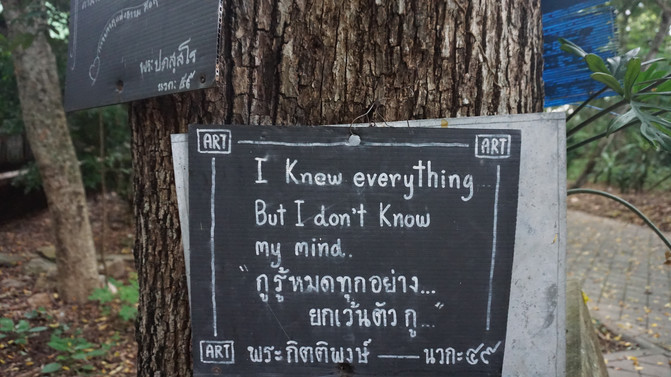 พระปดสุสโร
นวกะ ๕๙
ART ART
I Knew everything
But I don't Know
my mind.
"กูรู้หมดทุกอย่าง...
ยกเว้นตัวกู..."
ART พระกิตติพงษ์ — นวกะ๔๙